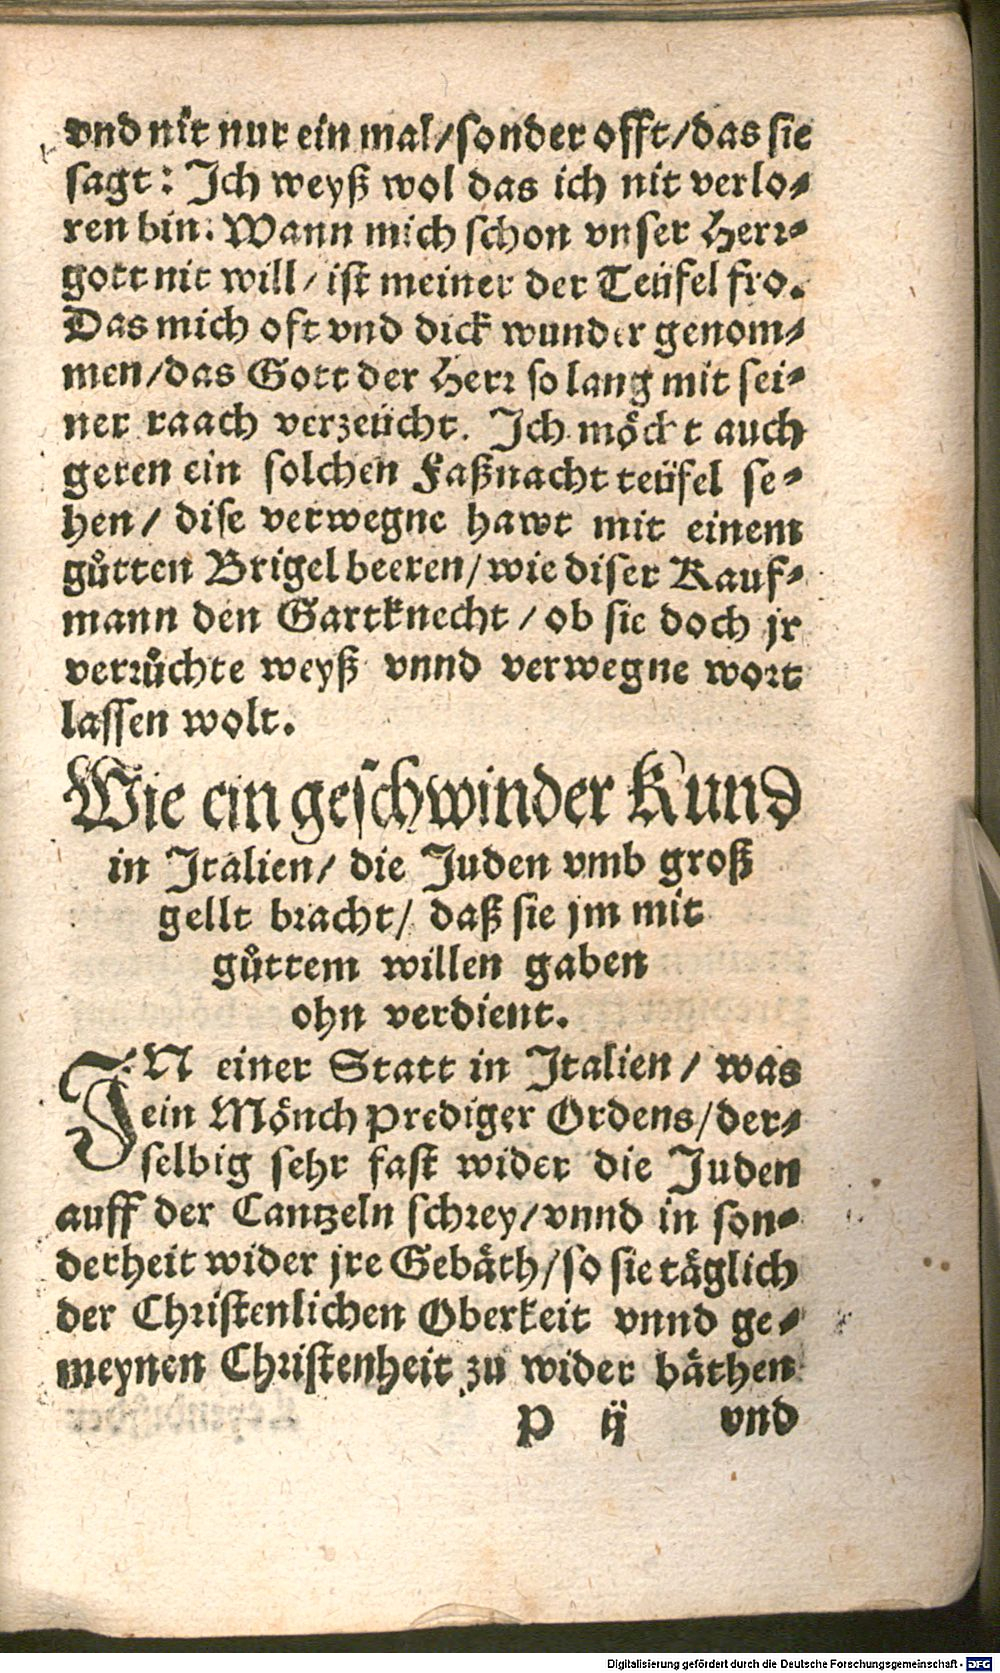 vnd nit nur ein mal/sonder offt/das sie
sagt: Ich weyß wol das ich nit verlo⸗
ren bin: Wann mich schon vnser Herr⸗
gott nit will/ ist meiner der Teüfel fro.
Das mich oft vnd dick wunder genom⸗
men/das Gott der Herr so lang mit sei⸗
ner raach verzeücht. Ich möcht auch
geren ein solchen Faßnacht teüfel se⸗
hen/ dise verwegne hawt mit einem
gůtten Brigel beeren/wie diser Kauf⸗
mann den Gartknecht/ob sie doch jr
verrůchte weyß vnnd verwegne wort
lassen wolt.
Wie ein geschwinder Kund
in Italien/ die Juden vmb groß
gellt bracht/ daß sie jm mit
gůttem willen gaben
ohn verdient.
IN einer Statt in Italien/ was
ein Mönch Prediger Ordens/der⸗
selbig sehr fast wider die Juden
auff der Cantzeln schrey/vnnd in son⸗
derheit wider jre Gebäth/so sie täglich
der Christenlichen Oberkeit vnnd ge⸗
meynen Christenheit zu wider bäthen
P ij vnd
Digitalisierung gefördert durch die Deutsche Forschungsgemeinschaft - DFG